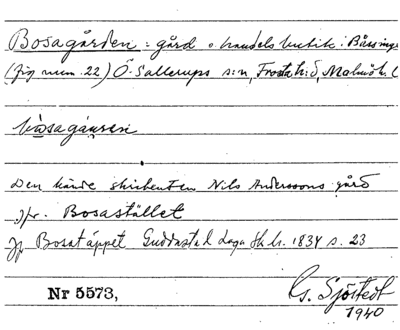 Bosagården : gård o. handelsbutik i Bässinge
(fig num. 22) Ö. Sallerups s:n, Frosta h:d, Malmöh. l
båsagáuren
Den kände skribenten Nils Anderssons gård
jfr. Bosastället
jfr Bosatäppet Guddastad Laga sk. h. 1834 s. 23
Nr 5573,
G. Sjöstedt
1940